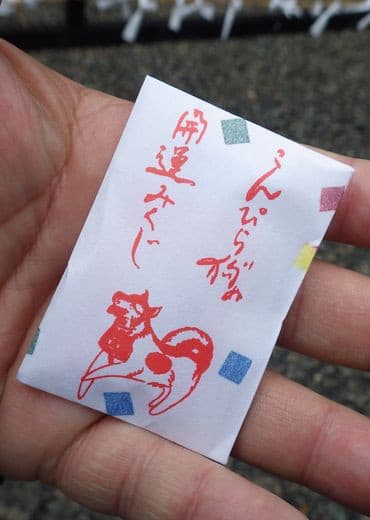 こんぴら狗の
開運みくじ